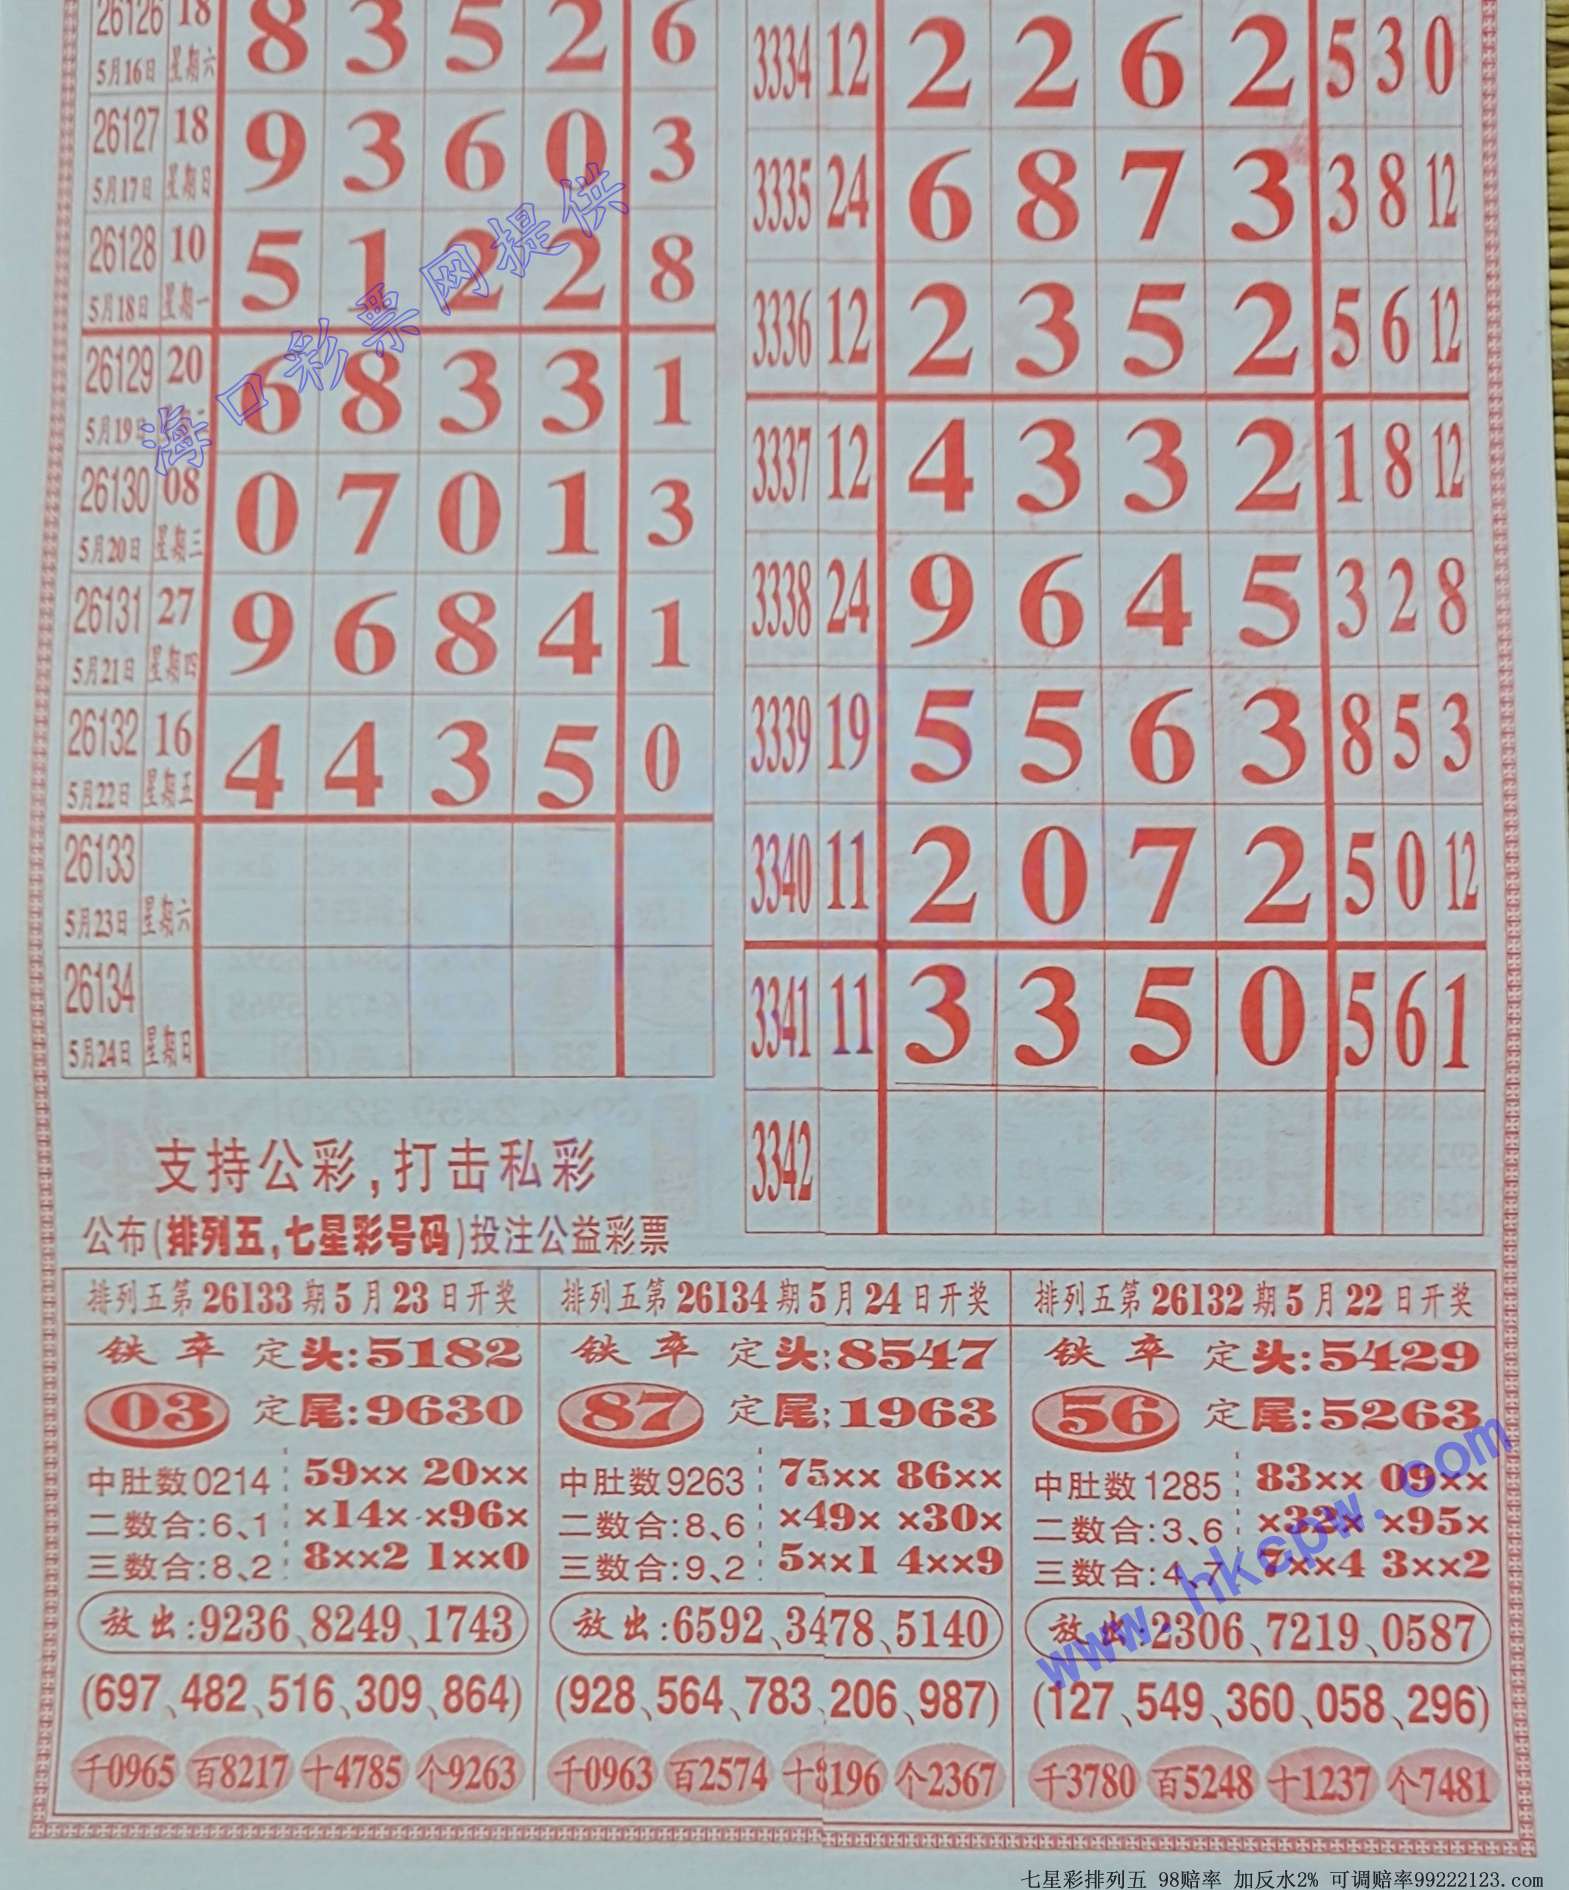 26126 18 8 3 5 2 6
5月16日 星期六
26127 18 9 3 6 0 3
5月17日 星期日
26128 10 5 1 2 2 8
5月18日 星期一
26129 20 6 8 3 3 1
5月19日
26130 08 0 7 0 1 3
5月20日 星期三
26131 27 9 6 8 4 1
5月21日 星期四
26132 16 4 4 3 5 0
5月22日 星期五
26133
5月23日 星期六
26134
5月24日 星期日
3334 12 2 2 6 2 5 3 0
3335 24 6 8 7 3 3 8 12
3336 12 2 3 5 2 5 6 12
3337 12 4 3 3 2 1 8 12
3338 24 9 6 4 5 3 2 8
3339 19 5 5 6 3 8 5 3
3340 11 2 0 7 2 5 0 12
3341 11 3 3 5 0 5 6 1
3342
海口彩票网提供
支持公彩,打击私彩
公布(排列五,七星彩号码)投注公益彩票
排列五第26133期5月23日开奖
铁卒 定头:5182
03 定尾:9630
中肚数0214 59×× 20××
二数合:6、1 ×14× ×96×
三数合:8、2 8××2 1××0
放出:9236、8249、1743
(697、482、516、309、864)
千0965 百8217 十4785 个9263
排列五第26134期5月24日开奖
铁卒 定头:8547
87 定尾:1963
中肚数9263 75×× 86××
二数合:8、6 ×49× ×30×
三数合:9、2 5××1 4××9
放出:6592、3478、5140
(928、564、783、206、987)
千0963 百2574 十8196 个2367
排列五第26132期5月22日开奖
铁卒 定头:5429
56 定尾:5263
中肚数1285 83×× 09××
二数合:3、6 ×32× ×95×
三数合:4、7 7××4 3××2
放出:2306、7219、0587
(127、549、360、058、296)
千3780 百5248 十1237 个7481
www.hkcpw.com
七星彩排列五 98赔率 加反水2% 可调赔率99222123.com